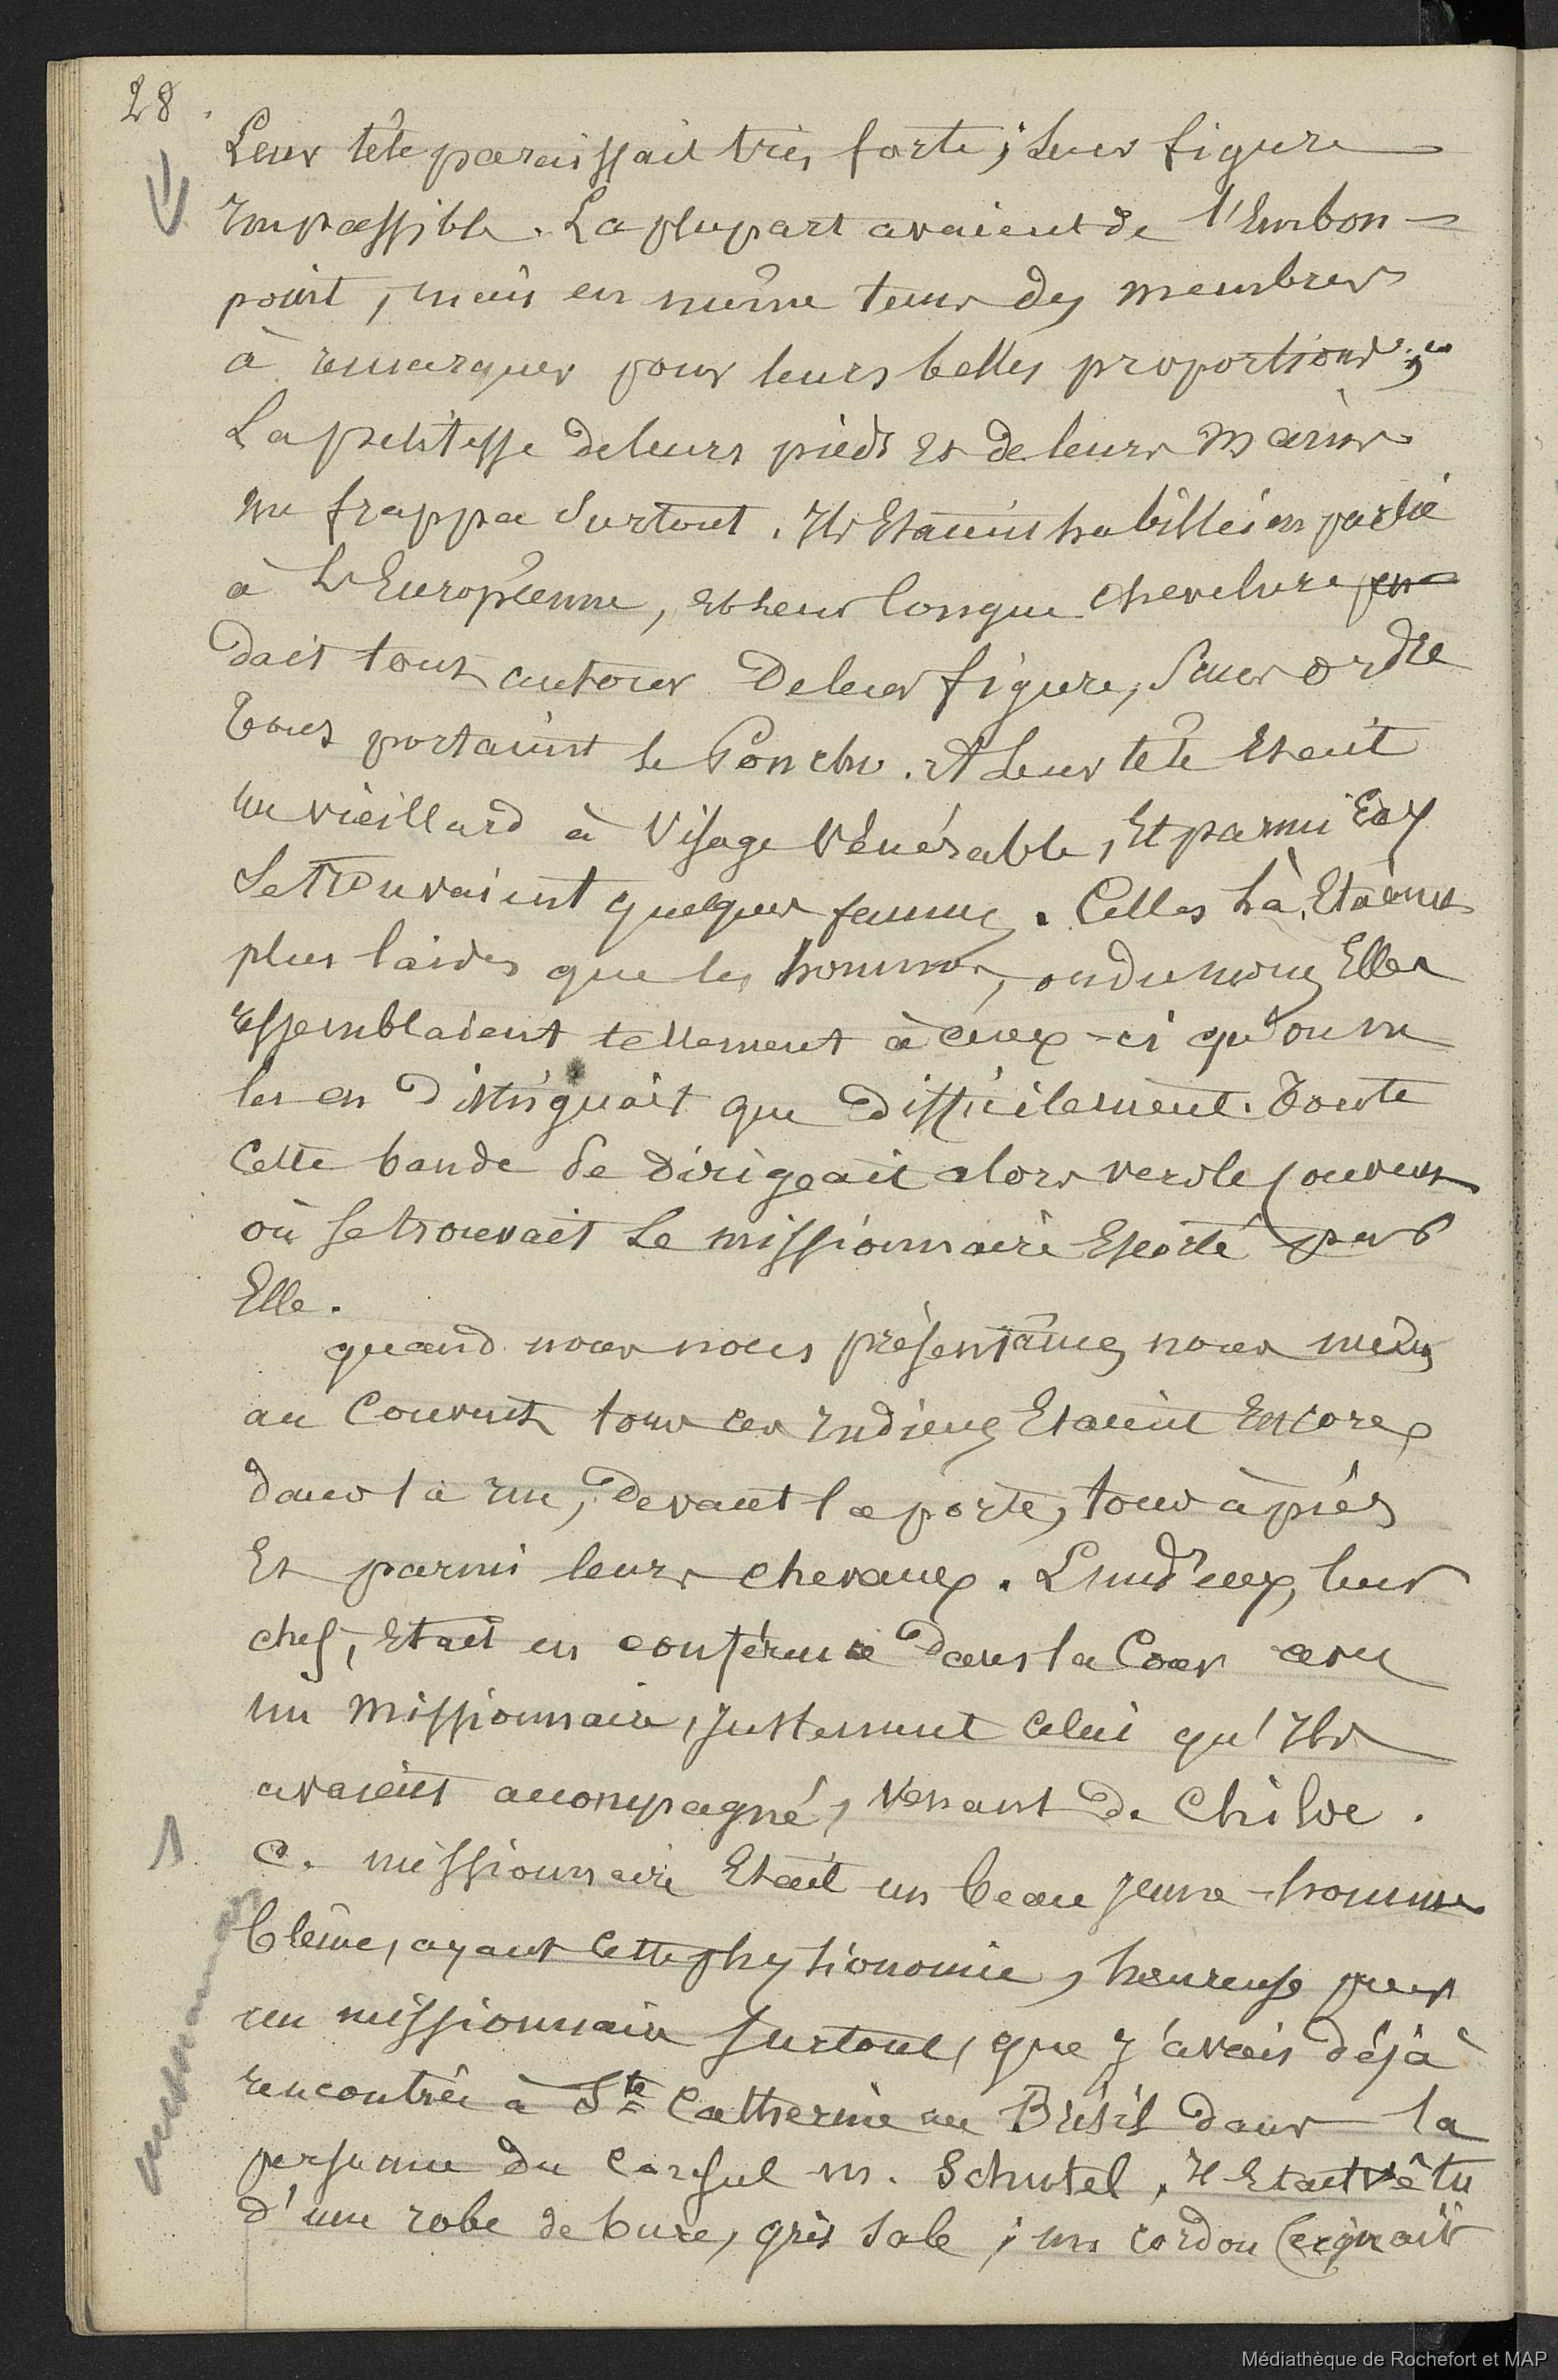 28.
Leur tête paraissait très forte ; leur figure
Impassible. La plupart avaient de l'Embon-
point, mais en même tems des membres
à remarquer pour leurs belles proportions ;
La petitesse de leurs pieds et de leurs mains
me frappa surtout. Ils Etaient habillés en partie
à L'Européenne, et leur longue chevelure pen-
dait tout autour de leur figure, sans ordre
Tous portaient le Poncho. A leur tête Etait
un vieillard à visage Vénérable, Et parmi Eux
se trouvaient quelques femmes. Celles là, Etaient
plus laides que les hommes, ou du moins Elles
ressemblaient tellement à ceux-ci qu'on ne
les en distinguait que difficilement. Toute
Cette bande se dirigeait alors vers le couvent
où se trouvait Le missionnaire Escorté par
Elle.
quand nous nous présentâmes nous mêmes
au Couvent tous ces Indiens Etaient Encore
dans la rue, devant la porte, tous à pied
Et parmi leurs chevaux. L'un d'eux, leur
chef, Etait en conférence dans la Cour avec
un Missionnaire, justement celui qu'Ils
avaient accompagné, venant de Chiloe.
1
Ce missionnaire Etait un beau jeune-homme
blême, ayant cette physionomie, heureuse pour
un missionnaire surtout, que j'avais déjà
rencontrée à Ste Catherine au Brésil dans la
personne du Consul m. Schutel. Il Etait vêtu
d'une robe de bure, gris sale ; un cordon Ceignait
Médiathèque de Rochefort et MAP